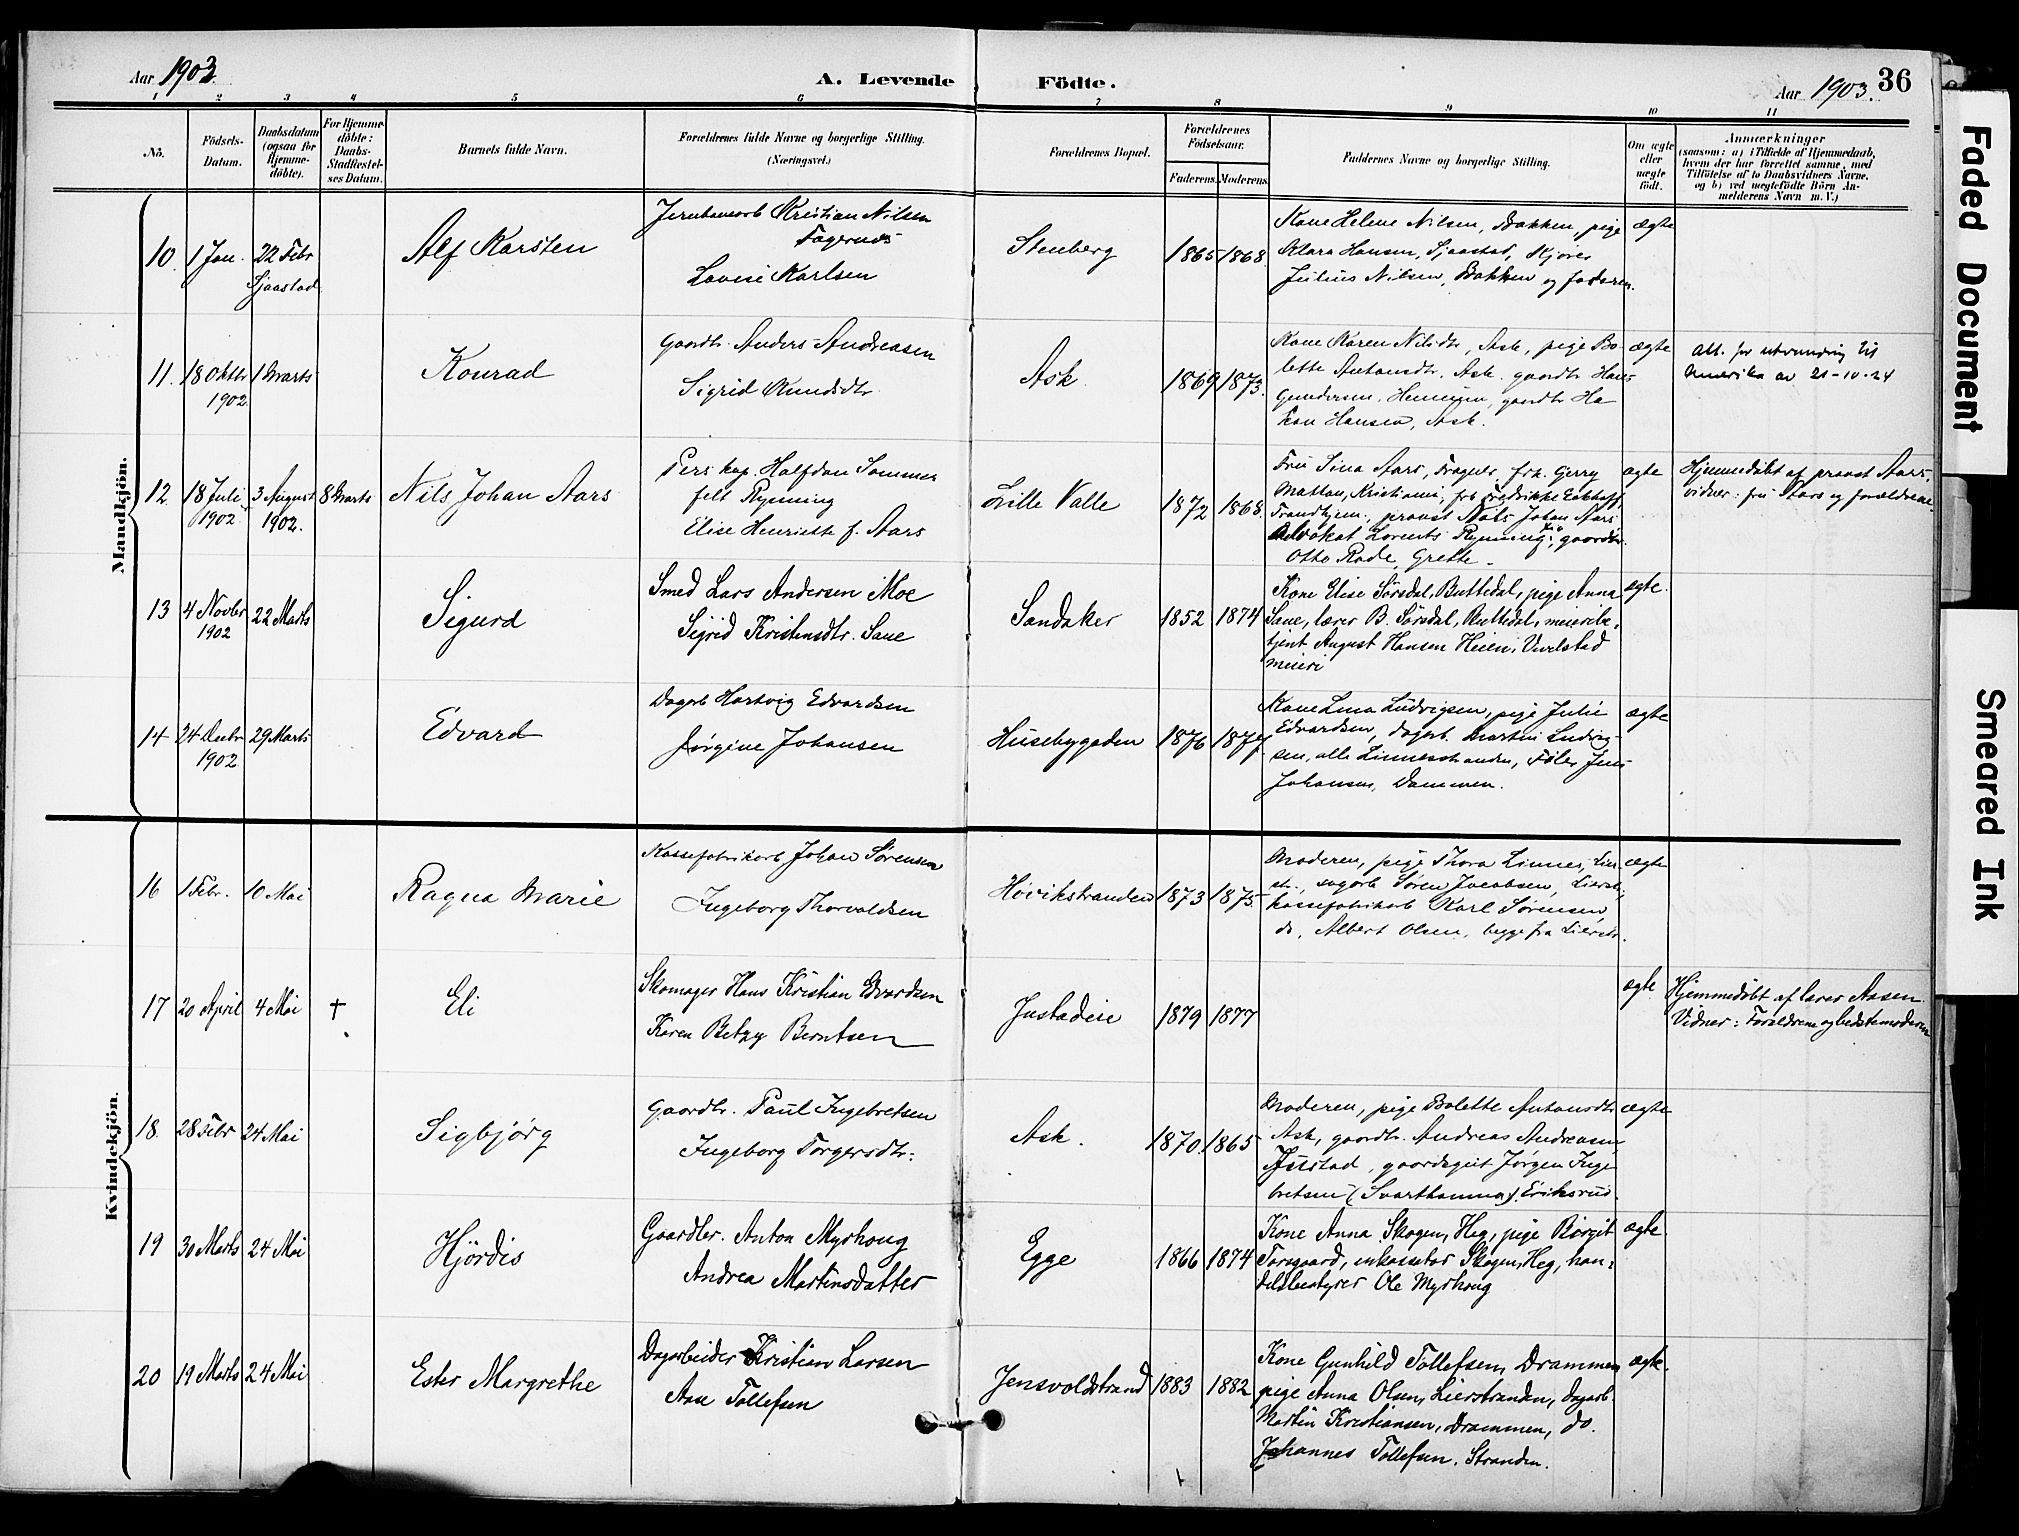 Aar 1903.
A. Levende Födte.
Aar 1903. 36
1 2 3 4 5 6 7 8 9 10 11
No.
Födsels-Datum.
Daabsdatum (ogsaa for Hjemme-döbte).
For Hjemme-döbte: Daabs-Stadfæstel-ses Datum.
Barnets fulde Navn.
Forældrenes fulde Navne og borgerlige Stilling. (Næringsvei.)
Forældrenes Bopæl.
Forældrenes Födselsaar.
Faderens. Moderens.
Faddernes Navne og borgerlige Stilling.
Om ægte eller uægte födt.
Anmærkninger
(saasom: a) i Tilfælde af Hjemmedaab,
hvem der har forrettet samme, med
Tilföielse af to Daabsvidners Navne.
og b) ved uægtefödte Börn An-
melderens Navn m. V.)
Mandkjön.
10. 1 Jan. 22 Febr Sjaastad
Alf Karsten
Jernbanearb Kristian Nilsen
Fagernes
Lovise Karlsen
Stenberg
1865 1868.
Kone Helene Nilsen, Bakken, pige
Klara Hansen, Sjaastad,
Julius Nilsen, Bakken og faderen.
ægte
11. 18 Oktbr 1902. 1 Marts
Konrad
Gaardbr. Anders Andreasen
Sigrid Knudsdtr.
Ask
1869 1873.
Kone Karen Nilsdtr, Ask, pige Bo-
lette Antonsdtr. Ask. gaardbr Hans
Gundersen, Henningen, gaardbr Ha
kon Hansen, Ask.
ægte
Att. for utvandring til
Amerika av 21-10-24
12. 18 Juli 1902. 3 August 1902. 8 Marts
Nils Johan Aars
Prs kap. Halfdan Sommer
felt Rynning
Elise Henriette f. Aars
Lille Valle
1872 1868.
Fru Sina Aars, Fragner, frk. Gerry
Mattau, Kristiania, frk Fredrikke Eckhoff,
Trondhjem, provst Nils Johan Aars
Advokat Lorents Rynning, gaardbr.
Otto Rode, Grette.
ægte
Hjemmedøbt af provst Aars,
vidner: fru Aars og forældrene.
13 4 Novbr 1902 22 Marts
Sigurd
Smed Lars Andersen Moe
Sigrid Kristensdtr. Saue
Sandaker
1852 1874
Kone Elise Sørsdal, Buttedal, pige Anna
Saue, lærer B. Sørsdal, Buttedal, meieribe-
tjent August Hansen Heien, Vivelstad
meieri
ægte.
14 24 Decbr 1902. 29 Marts
Edvard
Dagarb Hartvig Edvardsen
Jørgine Johansen
Husebygaden
1876 1877.
Kone Lina Ludvigsen, pige Julie
Edvardsen, dagarb. Martin Ludvig-
sen, alle Linnesstranden, Føler Jens
Johansen, Dammen.
ægte
Kvindekjön.
16 1 Febr. 10 Mai
Ragna Marie
Kassefabrikarb Johan Sørensen
Ingeborg Thorvaldsen
Høvikstranden
1873 1875.
Moderen, pige Thora Linnes, Lier-
str., sagarb Søren Jacobsen, Lierstr.,
kassefabrikarb Karl Sørensen,
do. Albert Olsen, begge fra Lierstr.
ægte
17 20 April 4 Mai †
Eli
Skomager Hans Kristian Edvardsen
Karen Betzy Berntsen
Justadeie
1879 1877
ægte.
Hjemmedøbt af lærer Aasen.
Vidner: Forældrene og bedstemoderen
18. 28 Febr 24 Mai
Sigbjørg
Gaardbr. Paul Ingebretsen
Ingeborg Torgersdtr.
Ask.
1870. 1865
Moderen, pige Bolette Antonsdtr
Ask, gaardbr. Andreas Andreasen,
Justad, gaardsgut Jørgen Inge
bretsen (Svarthamna), Eriksrud.
ægte
19 30 Marts 24 Mai
Hjördis
Gaardbr. Anton Myrhoug
Andrea Martinsdatter
Egge
1866 1874
Kone Anna Skogen, Heg, pige Birgit
Torsgaard, inkassator Skogen, Heg, han-
delsbestyrer Ole Myrhoug
ægte.
20 19 Marts 24 Mai
Ester Margrethe
Dagarbeider Kristian Larsen
Aase Tollefsen
Jensvoldstrand
1883 1882
Kone Gunhild Tollefsen, Drammen
pige Anna Olsen, Lierstranden, dagarb.
Martin Kristiansen, Drammen, do.
Johannes Tollefsen, Stranden.
ægte.
Faded Document
Smeared Ink